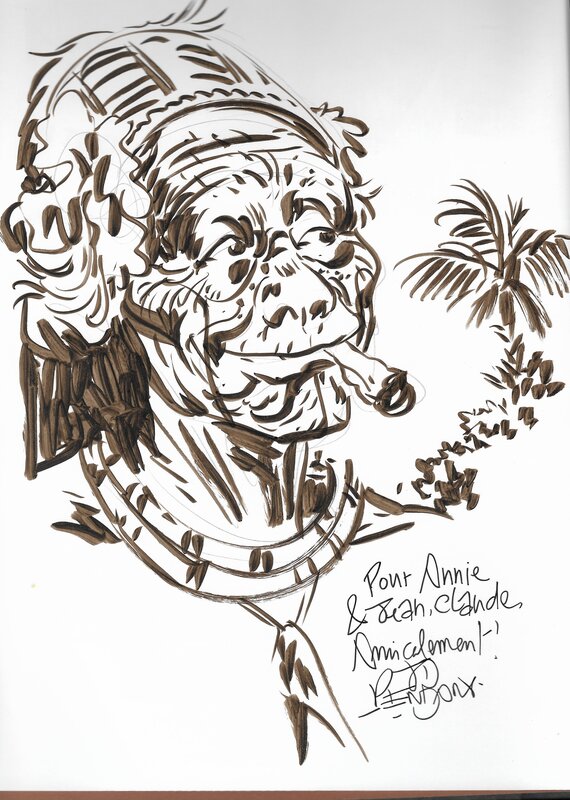 Pour Annie
& Jean, Claude,
Amicalement!